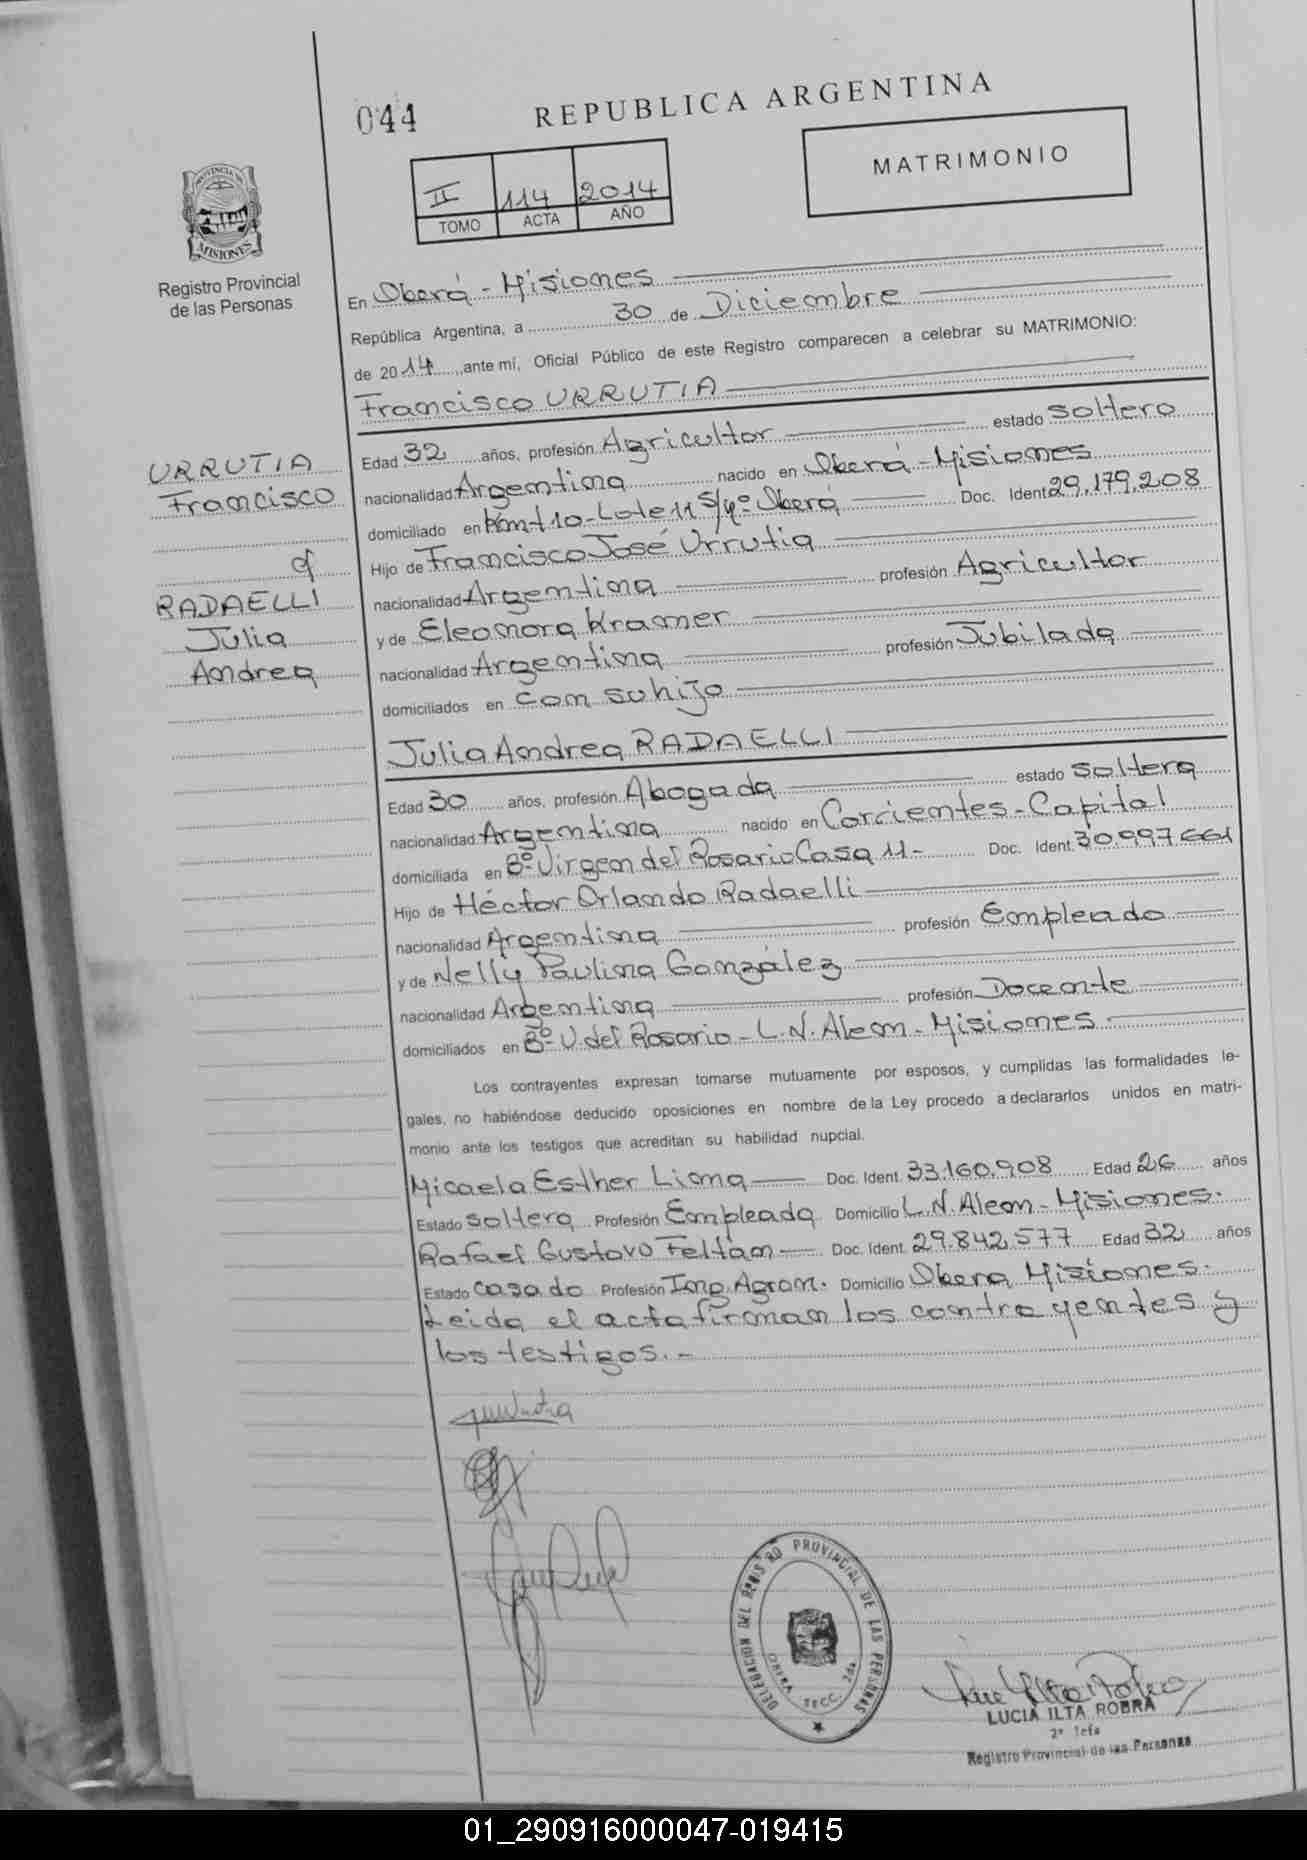 044
REPUBLICA ARGENTINA
MATRIMONIO
II 114 2014
TOMO ACTA AÑO
PROVINCIA DE
MISIONES
Registro Provincial
de las Personas
En Oberá - Misiones
República Argentina, a 30 de Diciembre
de 2014, ante mí, Oficial Público de este Registro comparecen a celebrar su MATRIMONIO:
Francisco URRUTIA
URRUTIA
Francisco
c/
RADAELLI
Julia
Andrea
Edad 32 años, profesión Agricultor estado soltero
nacionalidad Argentina nacido en Oberá - Misiones
domiciliado en Km 10 - Lote 11 S/nº Oberá Doc. Ident 29.179.208
Hijo de Francisco José Urrutia
nacionalidad Argentina profesión Agricultor
y de Eleonora Kramer
nacionalidad Argentina profesión Jubilada
domiciliados en con su hijo
Julia Andrea RADAELLI
Edad 30 años, profesión Abogada estado soltera
nacionalidad Argentina nacido en Corrientes - Capital
domiciliada en Bº Virgen del Rosario Casa 11 - Doc. Ident. 30.997.661
Hijo de Héctor Orlando Radaelli
nacionalidad Argentina profesión Empleado
y de Nelly Paulina González
nacionalidad Argentina profesión Docente
domiciliados en Bº V. del Rosario - L.N. Alem - Misiones
Los contrayentes expresan tomarse mutuamente por esposos, y cumplidas las formalidades le-
gales, no habiéndose deducido oposiciones en nombre de la Ley procedo a declararlos unidos en matri-
monio ante los testigos que acreditan su habilidad nupcial.
Micaela Esther Liona Doc. Ident. 33.160.908 Edad 26 años
Estado soltera Profesión Empleada Domicilio L.N. Alem - Misiones.
Rafael Gustavo Feltan Doc. Ident. 29.842.577 Edad 32 años
Estado casado Profesión Ing. Agron. Domicilio Obera Misiones.
Leida el acta firman los contrayentes y
los testigos. -
DELEGACION DEL REGISTRO PROVINCIAL DE LAS PERSONAS
OBERA SECC. 2da
LUCIA ILTA ROBRA
2º Jefe
Registro Provincial de las Personas
01_290916000047-019415